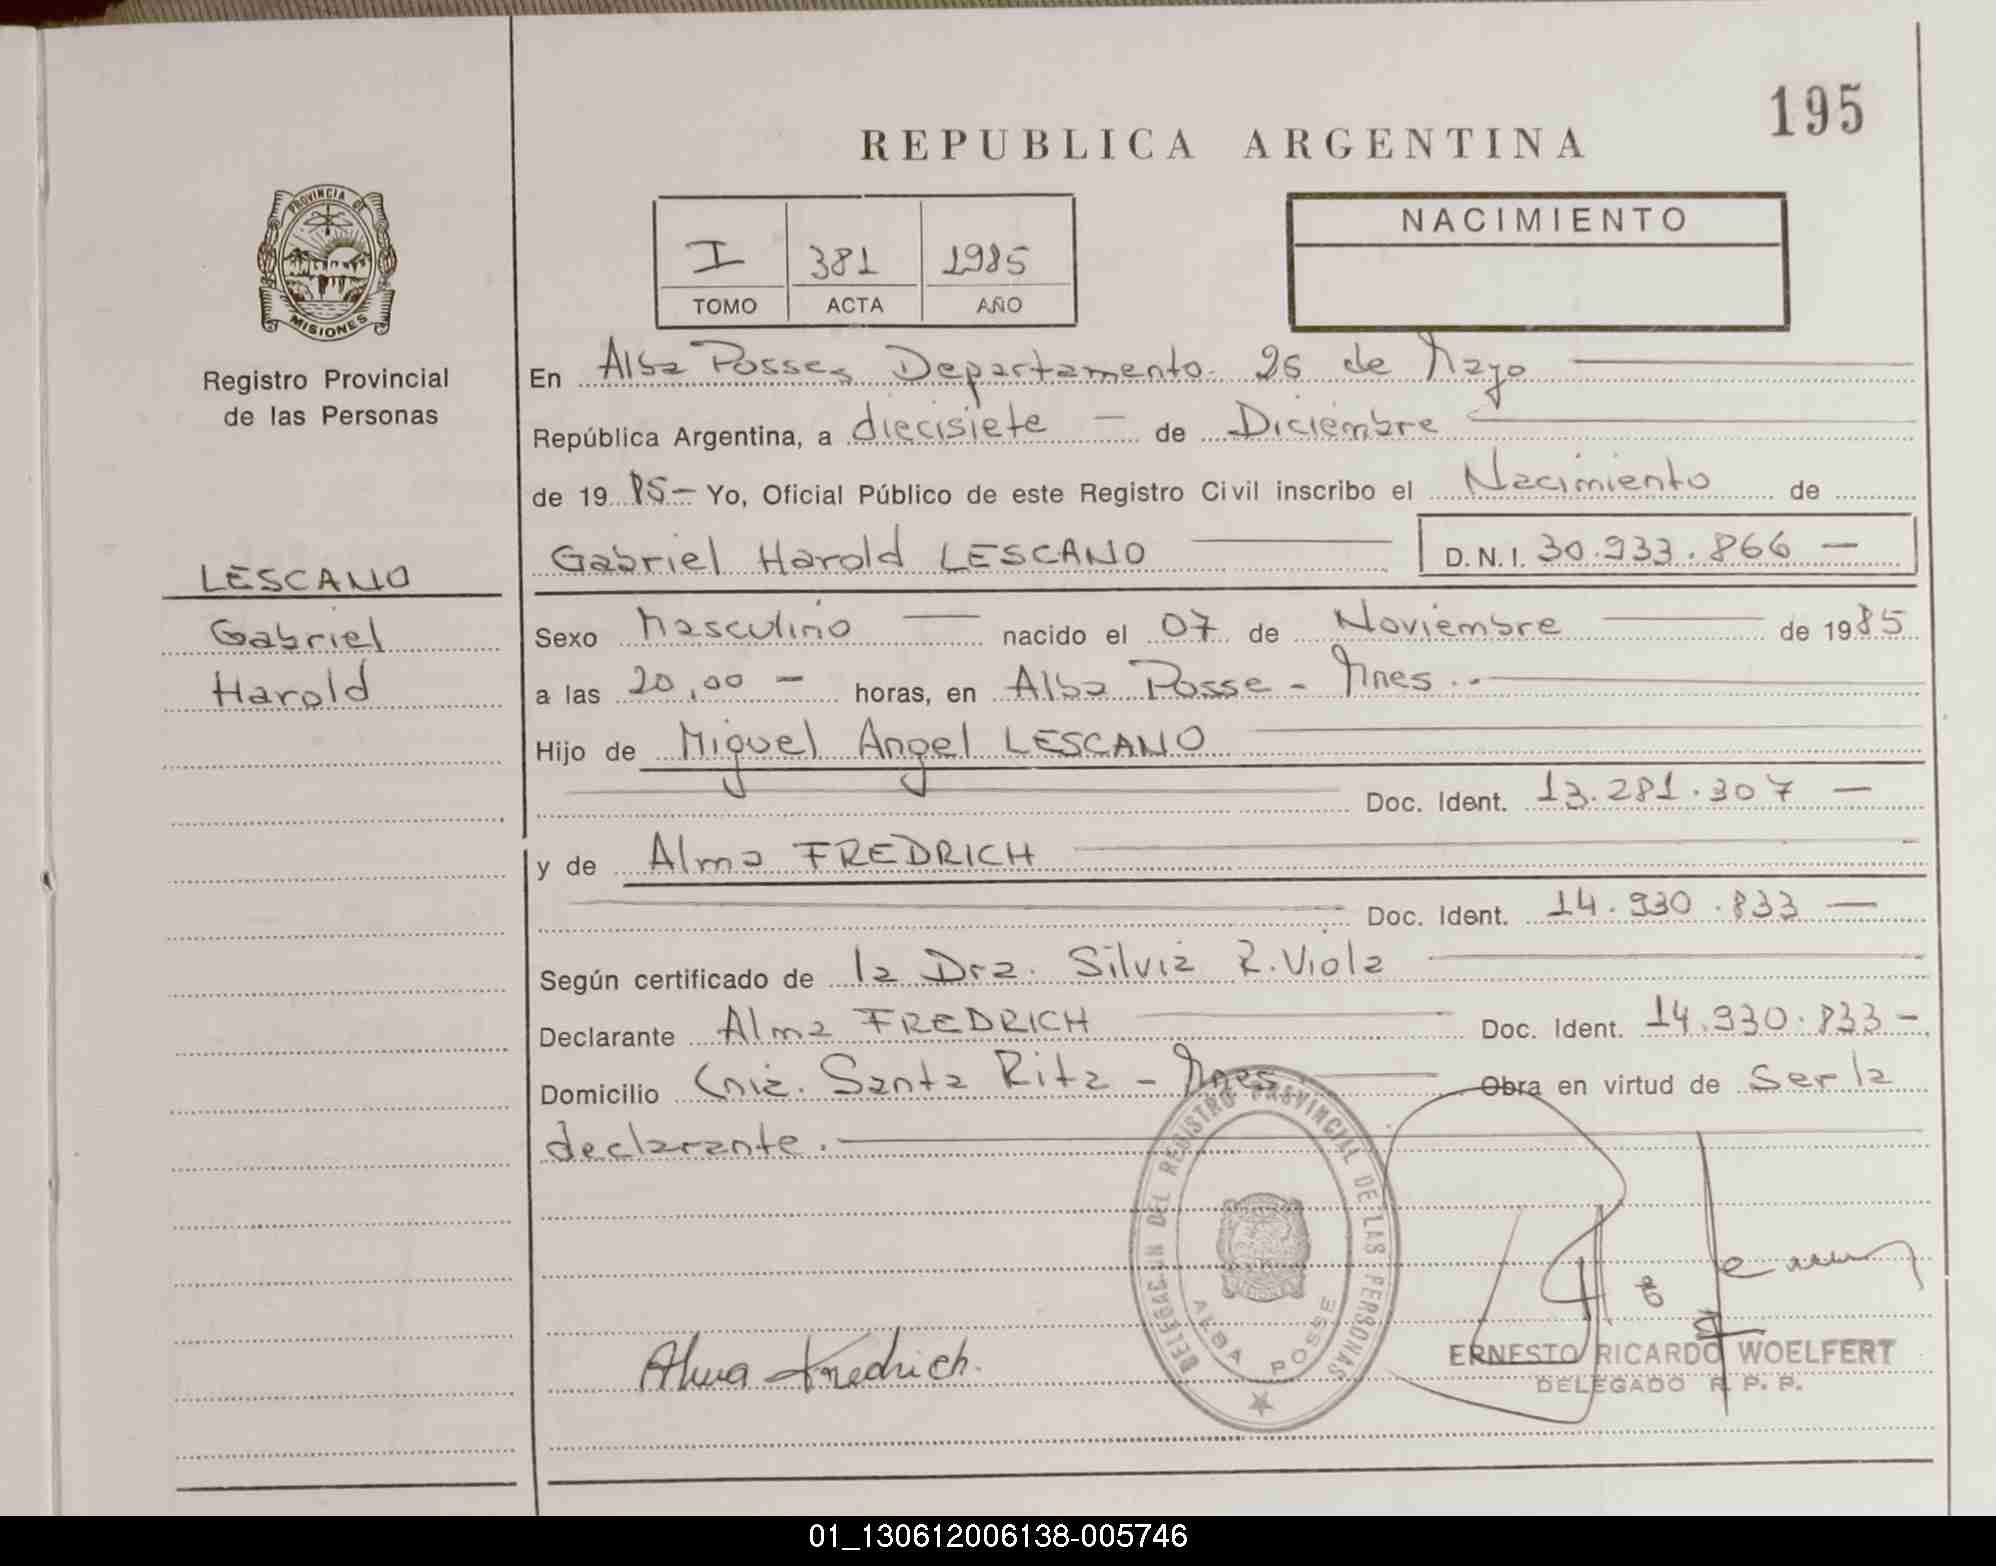 195
REPUBLICA ARGENTINA
PROVINCIA DE
MISIONES
Registro Provincial
de las Personas
I 381 1985
TOMO ACTA AÑO
NACIMIENTO
En Alba Posse, Departamento 25 de Mayo
República Argentina, a diecisiete — de Diciembre
de 19 85 - Yo, Oficial Público de este Registro Civil inscribo el Nacimiento de
Gabriel Harold LESCANO D.N.I. 30.933.866 —
LESCANO
Gabriel
Harold
Sexo Masculino — nacido el 07 de Noviembre — de 1985
a las 20,00 - horas, en Alba Posse - Mnes.-
Hijo de Miguel Angel LESCANO
Doc. Ident. 13.281.307 —
y de Alma FREDRICH
Doc. Ident. 14.930.833 —
Según certificado de la Dra. Silvia R. Viola
Declarante Alma FREDRICH Doc. Ident. 14.930.833 -
Domicilio Cnia. Santa Rita - Mnes. Obra en virtud de Ser la
declarante.
DEL REGISTRO PROVINCIAL DE LAS PERSONAS
ALBA POSSE
Alma Fredrich.
ERNESTO RICARDO WOELFERT
DELEGADO R. P. P.
01_130612006138-005746